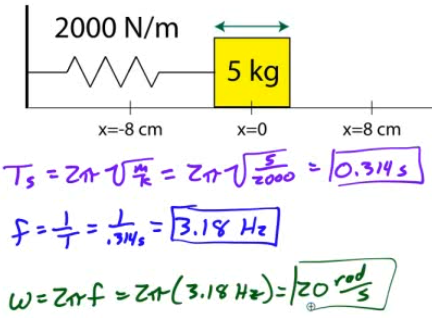 2000 N/m
5 kg
x=-8 cm x=0 x=8 cm
Ts = 2π √m/k = 2π √5/2000 = 0.314 s
f = 1/T = 1/.314s = 3.18 Hz
ω = 2πf = 2π(3.18 Hz) = 20 rad/s